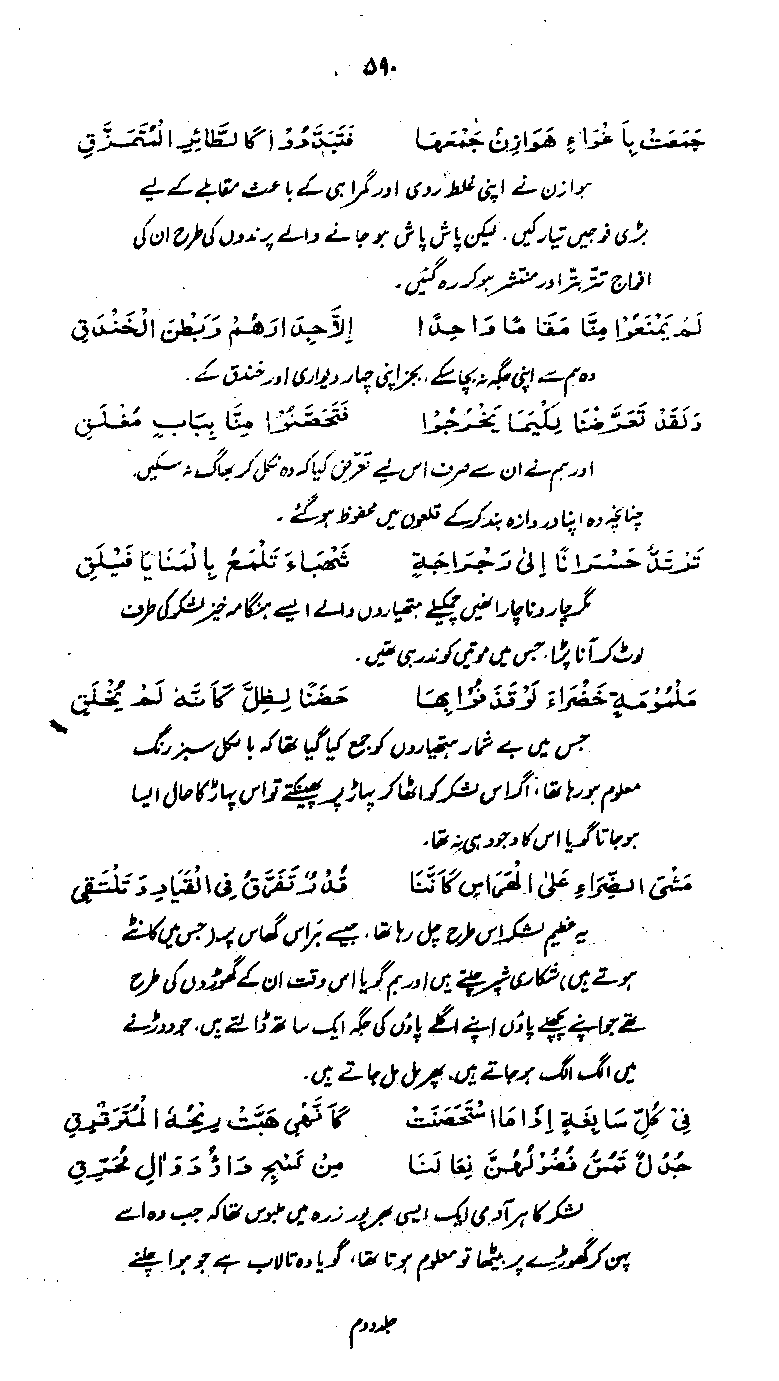 ۵۹۰
جَمَعَتْ بِاَغْوَاءِ هَوَازِنُ جَمْعَهَا فَتَبَدَّدُوْا كَالطَّائِرِ الْمُتَمَزِّقِ
ہوازن نے اپنی غلط روی اور گمراہی کے باعث مقابلے کے لیے
بڑی فوجیں تیار کیں، لیکن پاش پاش ہو جانے والے پرندوں کی طرح ان کی
افواج تتربتر اور منتشر ہو کر رہ گئیں۔
لَمْ يَمْنَعُوْا مِنَّا مَقَامًا وَاحِدًا اِلَّاجِدَارَهُمْ وَبَطْنَ الْخَنْدَقِ
وہ ہم سے اپنی جگہ نہ بچا سکے، بجز اپنی چار دیواری اور خندق کے۔
وَلَقَدْ تَعَرَّضْنَا لِكَيْمَا يَخْرُجُوْا فَتَحَصَّنُوْا مِنَّا بِبَابٍ مُغْلَقِ
اور ہم نے ان سے صرف اس لیے تعرض کیا کہ وہ نکل کر بھاگ نہ سکیں،
چنانچہ وہ اپنا دروازہ بند کر کے قلعوں میں محفوظ ہو گئے۔
تَرْتَدُّ حَسْرَانَا اِلٰى رَجْرَاجَةٍ شَهْبَاءَ تَلْمَعُ بِالْمَنَايَا فَيْلَقِ
مگر چار و ناچار انھیں چمکیلے ہتھیاروں والے ایسے ہنگامہ خیز لشکر کی طرف
لوٹ کر آنا پڑا، جس میں موتیں کوند رہی تھیں۔
مَلْمُوْمَةٍ خَضْرَاءَ لَوْ قَذَفُوْا بِهَا حَضَنًا لِظَلَّ كَاَنَّهٗ لَمْ يُخْلَقِ
جس میں بے شمار ہتھیاروں کو جمع کیا گیا تھا کہ بالکل سبز رنگ
معلوم ہو رہا تھا، اگر اس لشکر کو اٹھا کر پہاڑ پر پھینکتے تو اس پہاڑ کا حال ایسا
ہو جاتا گویا اس کا وجود ہی نہ تھا۔
مَشْىَ الضِّرَاءِ عَلَى الْهَرَاسِ كَاَنَّنَا قُدُرٌ تَفَرَّقُ فِى الْقِيَادِ وَتَلْتَقِىْ
یہ عظیم لشکر اس طرح چل رہا تھا، جیسے ہَراس گھاس پر (جس میں کانٹے
ہوتے ہیں) شکاری شیر چلتے ہیں اور ہم گویا اس وقت ان کے گھوڑوں کی طرح
تھے جو اپنے پچھلے پاؤں اپنے اگلے پاؤں کی جگہ ایک ساتھ ڈالتے ہیں، جو دوڑنے
میں الگ الگ ہو جاتے ہیں، پھر مل مل جاتے ہیں۔
فِىْ كُلِّ سَابِغَةٍ اِذَا مَا اسْتَحْصَنَتْ كَالنَّهْىِ هَبَّتْ رِيْحُهُ الْمُتَرَقْرِقِ
جُدُلٌ تَمُسُّ فُضُوْلُهُنَّ نِعَالَنَا مِنْ نَسْجِ دَاؤُدَ وَاٰلِ مُحَرِّقِ
لشکر کا ہر آدمی ایک ایسی بھرپور زرہ میں ملبوس تھا کہ جب وہ اسے
پہن کر گھوڑے پر بیٹھتا تو معلوم ہوتا تھا، گویا وہ تالاب ہے جو ہوا چلنے
جلد دوم